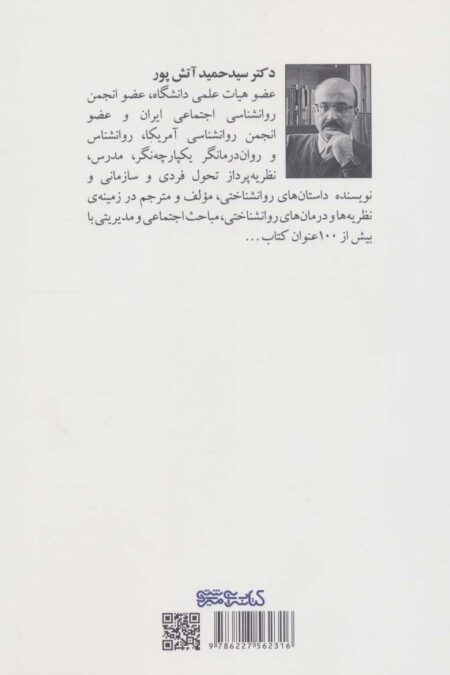 دکتر سیدحمید آتش پور
عضو هیات علمی دانشگاه، عضو انجمن
روانشناسی اجتماعی ایران و عضو
انجمن روانشناسی آمریکا، روانشناس
و روان‌درمانگر یکپارچه‌نگر، مدرس،
نظریه‌پرداز تحول فردی و سازمانی و
نویسنده داستان‌های روانشناختی، مؤلف و مترجم در زمینه‌ی
نظریه‌ها و درمان‌های روانشناختی، مباحث اجتماعی و مدیریتی با
بیش از ۱۰۰ عنوان کتاب...
9 786227 562316